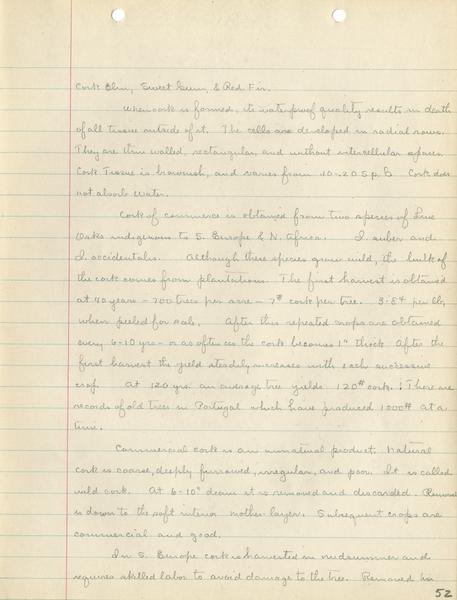 Cork Elm, Sweet Gum, & Red Fir.
When cork is formed, its waterproof quality results in death
of all tissue outside of it. The cells are developed in radial rows.
They are thin walled, rectangular, and without intercellular spaces.
Cork Tissue is brownish, and varies from .10-.20 S.p. G Cork does
not absorb water.
Cork of commerce is obtained from two species of Live
Oaks indigenous to S. Europe & N. Africa. I. suber and
I. accidentalis. Although these species grow wild, the bulk of
the cork comes from plantations. The first harvest is obtained
at 40 years - 700 trees per acre - 7# cork per tree. 3-8¢ per lb,
when peeled for sale. After this repeated crops are obtained
every 6-10 yrs - or as often as the cork becomes 1" thick. After the
first harvest the yield steadely increases with each successive
crop. At 120 yrs. an average tree yields 120# cork. There are
records of old trees in Portugal which have produced 1000# at a
time.
Commercial cork is an unnatural product. Natural
cork is coarse, deeply furrowed, irregular, and poor. It is called
wild cork. At 6-10" deam it is removed and discarded. Removal
is down to the soft interior mother layer. Subsequent crops are
commercial and good.
In S. Europe cork is harvested in midsummer and
requires skilled labor to avoid damage to the tree. Removed in
52